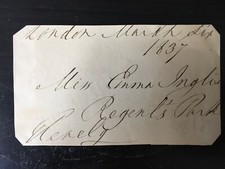 London March Six
1837
Miss Emma Inglis
Regent's Park